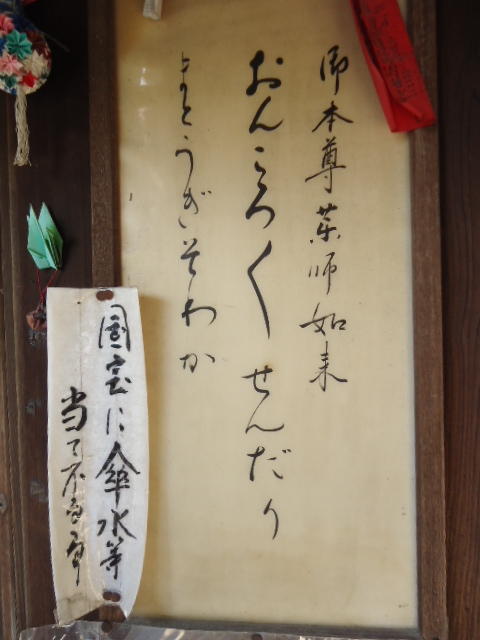 御本尊薬師如来
おんころ〱せんだり
まとうぎそわか
国宝に傘水等
当て不可